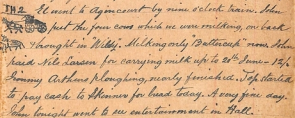 TH 2 El went to Agincourt by nine o'clock train. John
put the four cows which we were milking, on back
& brought in Wildy. Milking only Buttercup now. John
paid Nels Larsen for carrying milk up to 21st June - 12/-
Jimmy Arthurs ploughing, nearly finished. Top started
to pay cash to Skennor for bread today. A very fine day.
went to see entertainment in Hall.